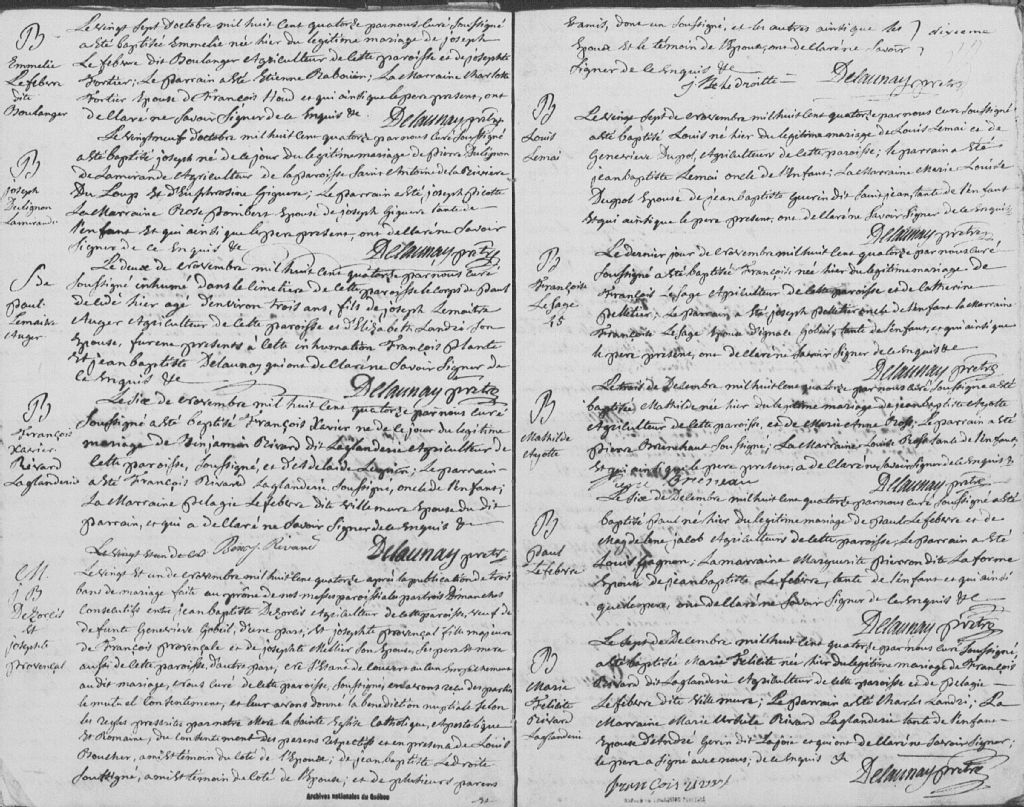 B
Emmelie
Lefebvre
dit
Boulanger
Le vingt sept d'octobre mil huit cent quatorze par nous curé soussigné
a été baptisée Emmelie née hier du legitime mariage de joseph
Lefebvre dit Boulanger Agriculteur de cette paroisse et de josephte
Fortier; Le parrain a été Etienne Rabouin; La marraine Charlotte
Fortier Epouse de François Houd et qui ainsi que le pere present, ont
declaré ne savoir signer de ce Enquis &c. Delaunay ptre
B
joseph
Dulignon
Lamirande
Le vingt neuf d'octobre mil huit cent quatorze par nous curé soussigné
a été baptisé joseph né de ce jour du legitime mariage de pierre Dulignon
de Lamirande Agriculteur de la paroisse Saint Antoine de la Riviere
Du Loup et d'Euphrosine Giguere; Le parrain a été joseph
La Marraine Rose Epouse de joseph Giguere tante de
l'enfant et qui ainsi que le pere present, ont declaré ne savoir
signer de ce Enquis &c Delaunay ptre
S de
Paul
Lemaitre
Auger
Le deux de Novembre mil huit cent quatorze par nous curé
soussigné inhumé dans le cimetiere de cette paroisse le corps de Paul
decedé hier agé d'environ trois ans, fils de joseph Lemaitre
Auger Agriculteur de cette paroisse et d'Elizabeth Landri son
Epouse, furent presents à cette inhumation François Plante
Et jean baptiste Delaunay qui ont declaré ne savoir signer de
ce Enquis &c Delaunay ptre
B
François
Xavier
Rivard
Laglanderie
Le six de Novembre mil huit cent quatorze par nous curé
soussigné a été baptisé François Xavier né de ce jour du legitime
mariage de Benjamin Rivard dit Laglanderie Agriculteur de
cette paroisse, soussigné, et d'Adelaide; Le parrain
a été François Rivard Laglanderie soussigné, oncle de l'enfant;
La Marraine Pelagie Lefebvre dite Villemure Epouse du dit
parrain, et qui a declaré ne savoir signer de ce Enquis &c
Le vingt et un de Benj. Rivard Delaunay ptre
M.
J B
Dezorcis
et
josephte
Provençal
Le vingt et un de Novembre mil huit cent quatorze après la publication de trois
bans de mariage faite au prône de nos messes paroissiales par trois dimanches
consecutifs entre jean baptiste Dezorcis Agriculteur de cette paroisse, veuf de
defunte Genevieve, d'une part, Et josephte Provençal fille majeure
de François Provençale et de josephte Mettier son Epouse, ses pere et mere
aussi de cette paroisse, d'autre part, ne s'étant decouvert aucun Empêchement
au dit mariage, Nous curé de cette paroisse, soussigné, avons reçu des parties
le mutuel consentement, et leur avons donné la benediction nuptiale selon
les regles prescrites par notre Mere la Sainte Eglise Catholique, Apostolique
et Romaine, du consentement des parens respectifs et en presence de Louis
Boucher, ami et temoin du coté de l'Epoux; de jean baptiste Ledroitte
soussigné, ami et temoin du coté de l'Epouse; et de plusieurs parens
Archives nationales du Québec
& amis, dont un soussigné, et les autres ainsi que les
Epoux et le témoin de l'Epoux, ont declaré ne savoir
signer de ce Enquis &c
J Bte Ledroitte Delaunay ptre
B
Louis
Lemai
Le vingt sept de Novembre mil huit cent quatorze par nous curé soussigné
a été baptisé Louis né hier du legitime mariage de Louis Lemai et de
Genevieve, Agriculteur de cette paroisse; le parrain a été
jean baptiste Lemai oncle de l'enfant; La Marraine Marie Louise
Epouse de jean baptiste Guerin dit Saint jean, tante de l'enfant
Et qui ainsi que le pere present, ont declaré ne savoir signer de ce Enquis
Delaunay ptre
B
Françoise
Le Sage
Le dernier jour de Novembre mil huit cent quatorze par nous curé
soussigné a été baptisée Françoise, née hier du legitime mariage de
François Le Sage Agriculteur de cette paroisse et de Catherine
Pelletier; Le parrain a été joseph Pelletier oncle de l'enfant La marraine
Françoise Le Sage Epouse d'Ignace, tante de l'enfant, et qui ainsi que
le pere present, ont declaré ne savoir signer de ce Enquis &c
Delaunay ptre
B
Mathilde
Ayotte
Le trois de Decembre mil huit cent quatorze par nous curé soussigné a été
baptisée Mathilde née hier du legitime mariage de jean baptiste Ayotte
Agriculteur de cette paroisse, et de Marie Anne; Le parrain a été
Pierre soussigné; La marraine Louise tante de l'enfant,
Et qui ainsi que le pere present, a declaré ne savoir signer de ce Enquis &c
Delaunay ptre
B
Paul
Lefebvre
Le six de Decembre mil huit cent quatorze par nous curé soussigné a été
baptisé Paul né hier du legitime mariage de Paul Lefebvre et de
Magdelene jalob Agriculteur de cette paroisse; Le parrain a été
Louis Gagnon; La marraine Marguerite Pierron dit La forme
Epouse de jean baptiste Lefebvre, tante de l'enfant et qui ainsi
que le pere, ont declaré ne savoir signer de ce Enquis &c
Delaunay ptre
B
Marie
Felicité
Rivard
Laglanderie
Le sept de Decembre mil huit cent quatorze par nous curé soussigné,
a été baptisée Marie Felicité née hier du legitime mariage de François
Rivard dit Laglanderie Agriculteur de cette paroisse et de Pelagie
Lefebvre dite Villemure; Le parrain a été Charles Landri; La
Marraine Marie Ursule Rivard Laglanderie tante de l'enfant
Epouse d'André Gerin dit Lajoie et qui ont declaré ne savoir signer;
le pere a signé avec nous; de ce Enquis &c
françois rivard Delaunay ptre